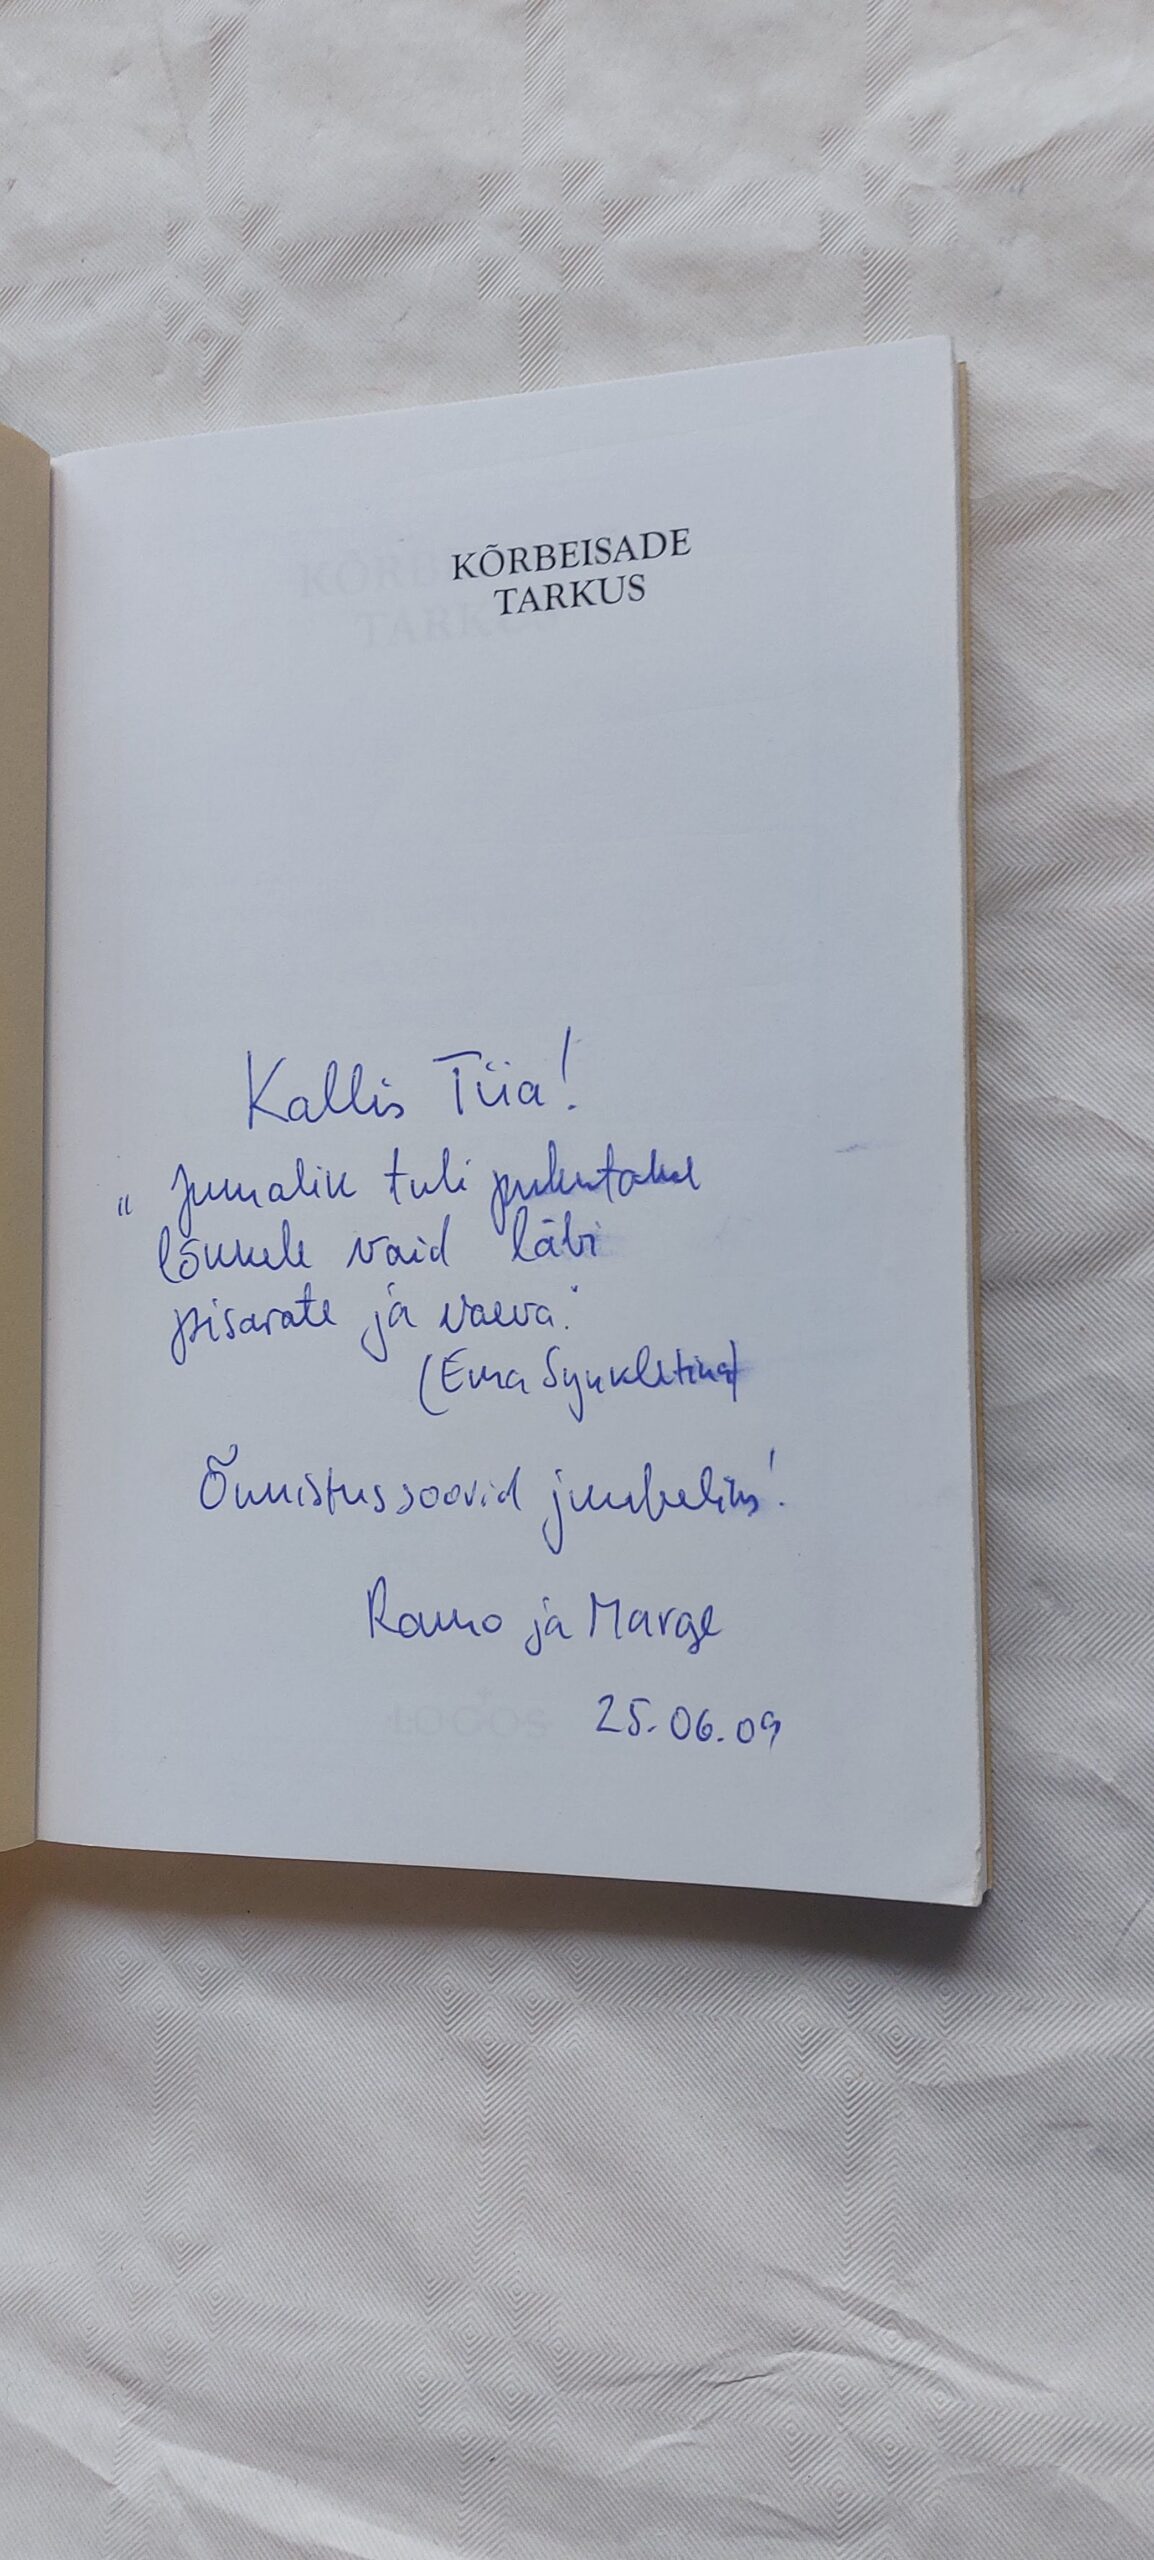 KÕRBEISADE
TARKUS
Kallis Tiia!
"Jumalik tuli puhutakse
lõkkele vaid läbi
pisarate ja vaeva."
(Ema Synkletika)
Õnnistussoovid juubeliks!
Raimo ja Marge
25.06.09
LOGOS